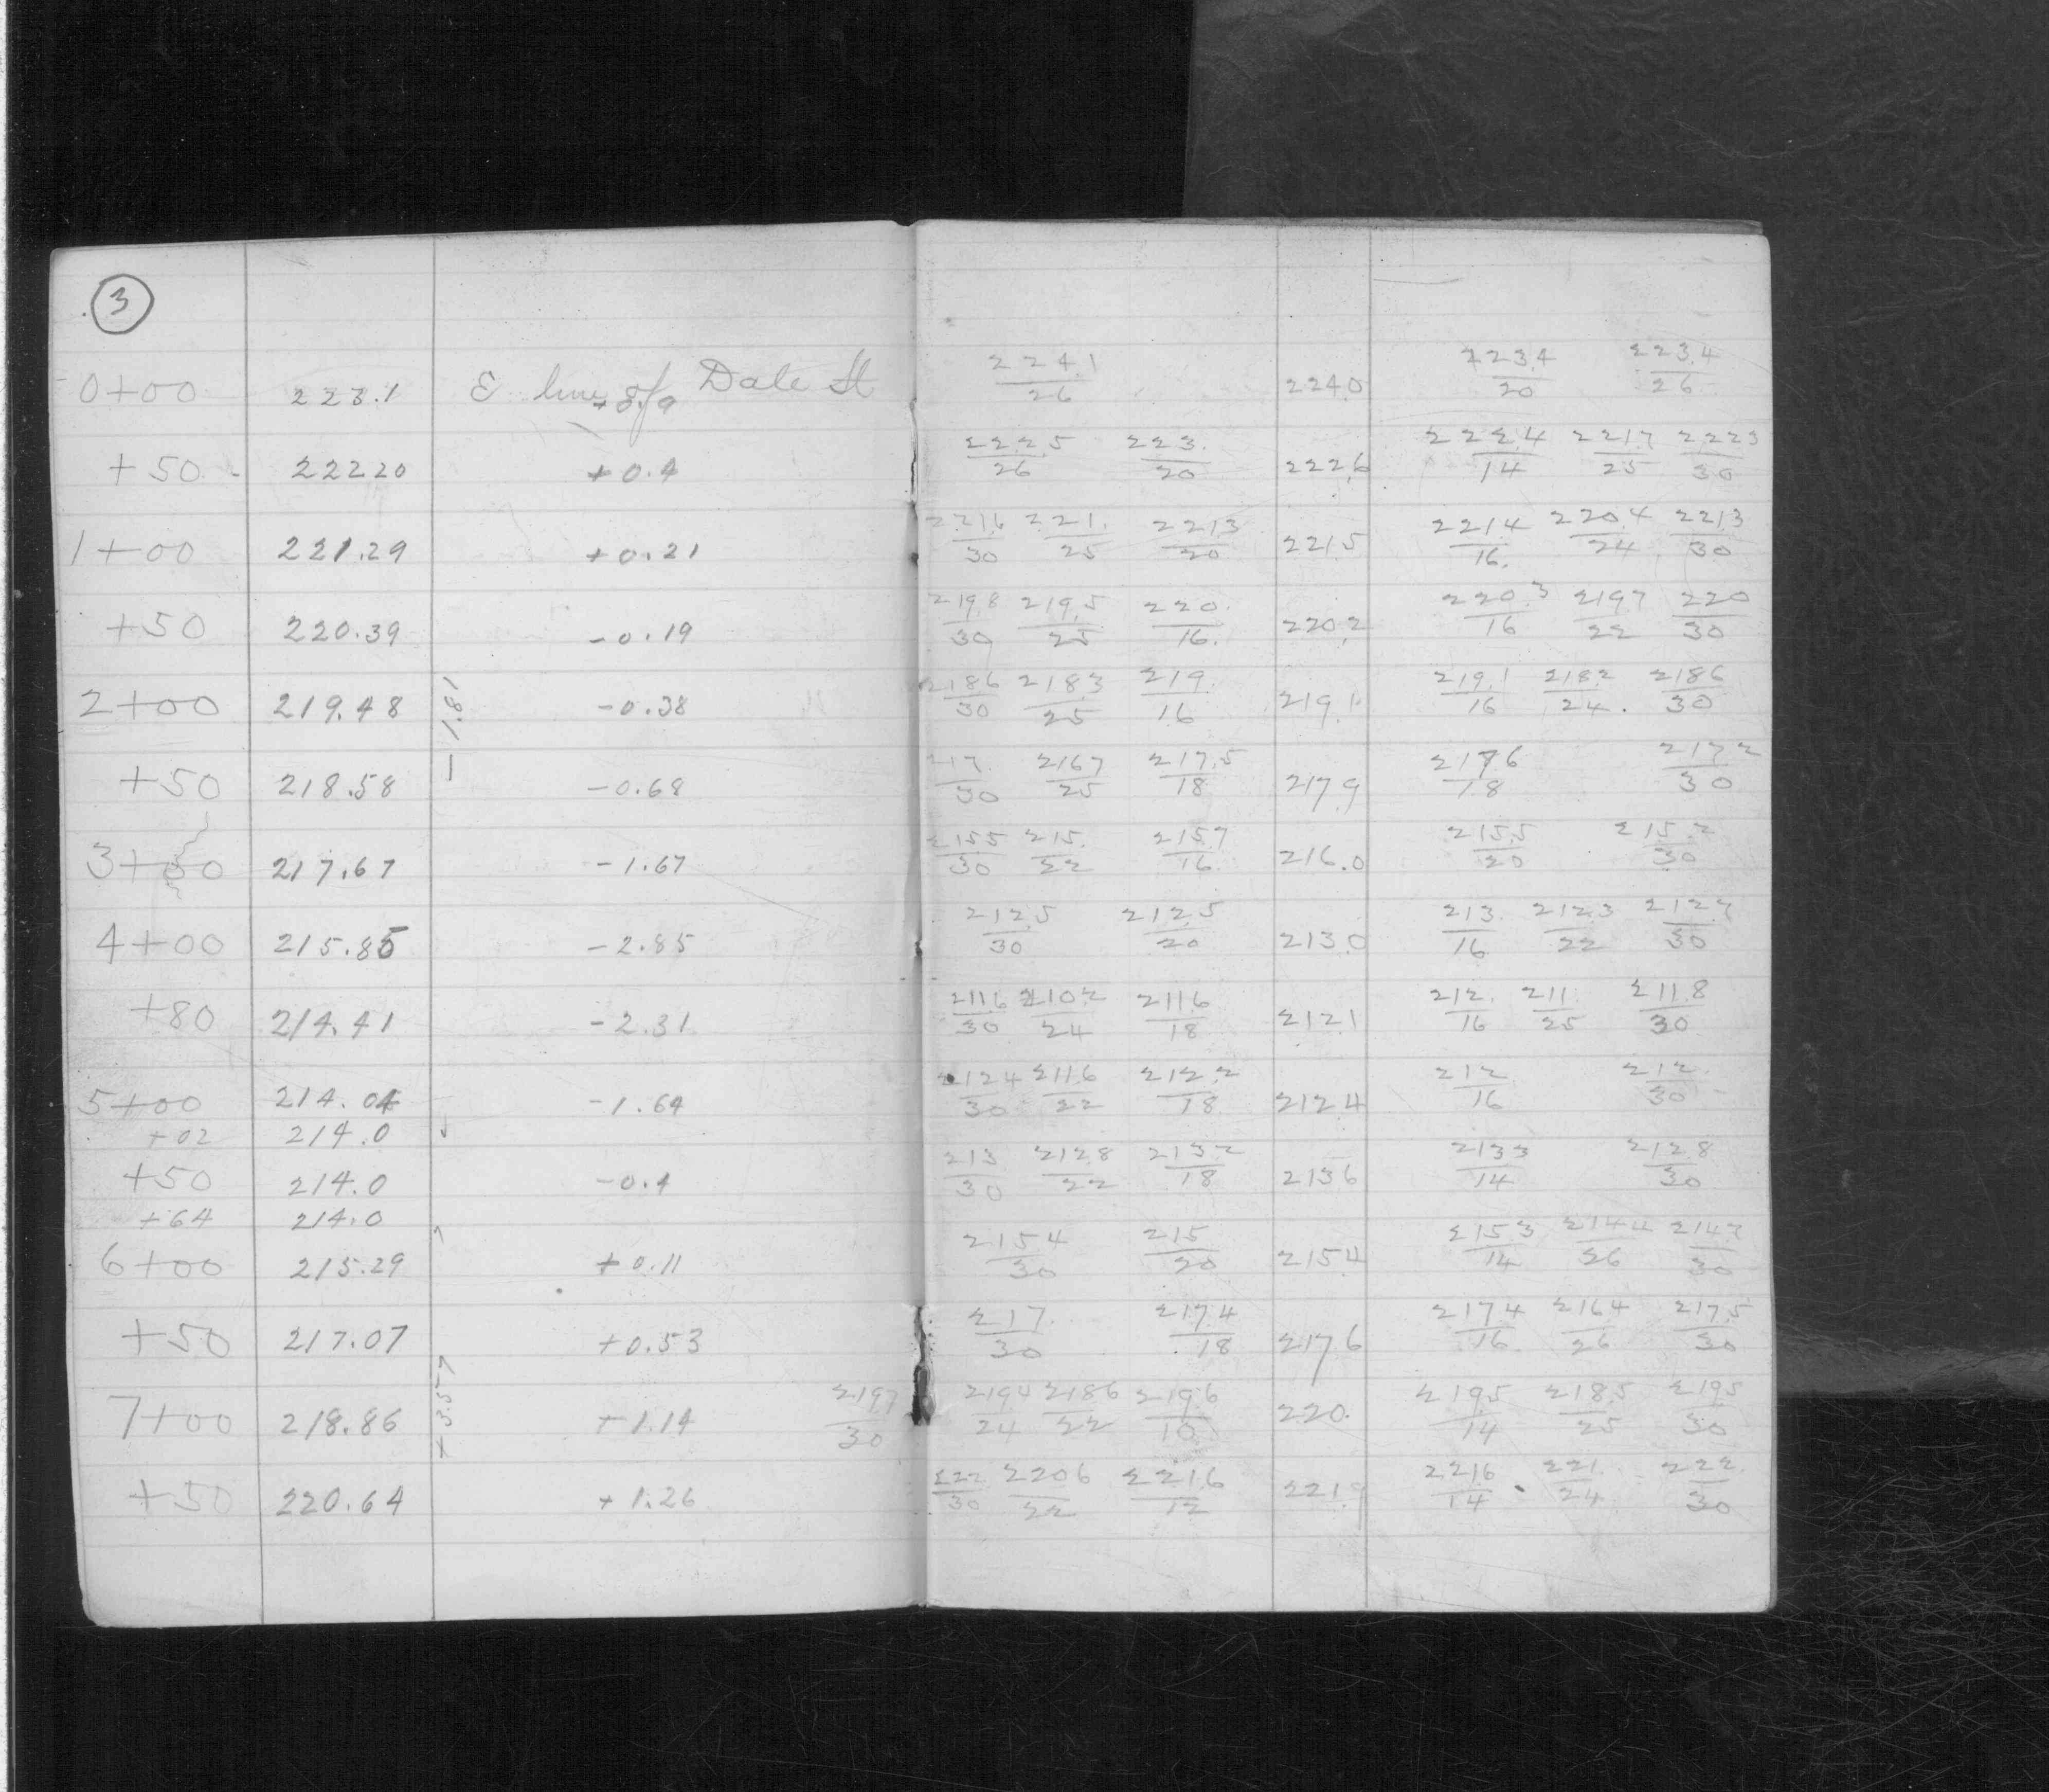 3
0+00 223.1 E line of Date St +0.9 224.1/26 224.0 223.4/20 223.4/26
+50 222.20 +0.4 222.5/26 223./20 222.6 222.4/14 221.7/25 222.3/30
1+00 221.29 +0.21 221.6/30 221./25 221.3/20 221.5 221.4/16 220.4/24 221.3/30
+50 220.39 -0.19 219.8/30 219.5/25 220./16 220.2 220.3/16 219.7/22 220/30
2+00 219.48 -1.81 -0.38 218.6/30 218.3/25 219./16 219.1 219.1/16 218.2/24 218.6/30
+50 218.58 -0.68 217./30 216.7/25 217.5/18 217.9 217.6/18 217.2/30
3+00 217.67 -1.67 215.5/30 215./22 215.7/16 216.0 215.5/20 215.2/30
4+00 215.85 -2.85 212.5/30 212.5/20 213.0 213./16 212.3/22 212.7/30
+80 214.41 -2.31 211.6/30 210.2/24 211.6/18 212.1 212./16 211./25 211.8/30
5+00 214.04 -1.64 212.4/30 211.6/22 212.2/18 212.4 212/16 212./30
+02 214.0
+50 214.0 -0.4 213/30 212.8/22 213.2/18 213.6 213.3/14 212.8/30
+64 214.0
6+00 215.29 +0.11 215.4/30 215/20 215.4 215.3/14 214.4/26 214.7/30
+50 217.07 +0.53 217./30 217.4/18 217.6 217.4/16 216.4/26 217.5/30
7+00 218.86 +3.57 +1.14 219.7/30 219.4/24 218.6/22 219.6/10 220. 219.5/14 218.5/25 219.5/30
+50 220.64 +1.26 222/30 220.6/22 221.6/12 221.9 221.6/14 221./24 222./30